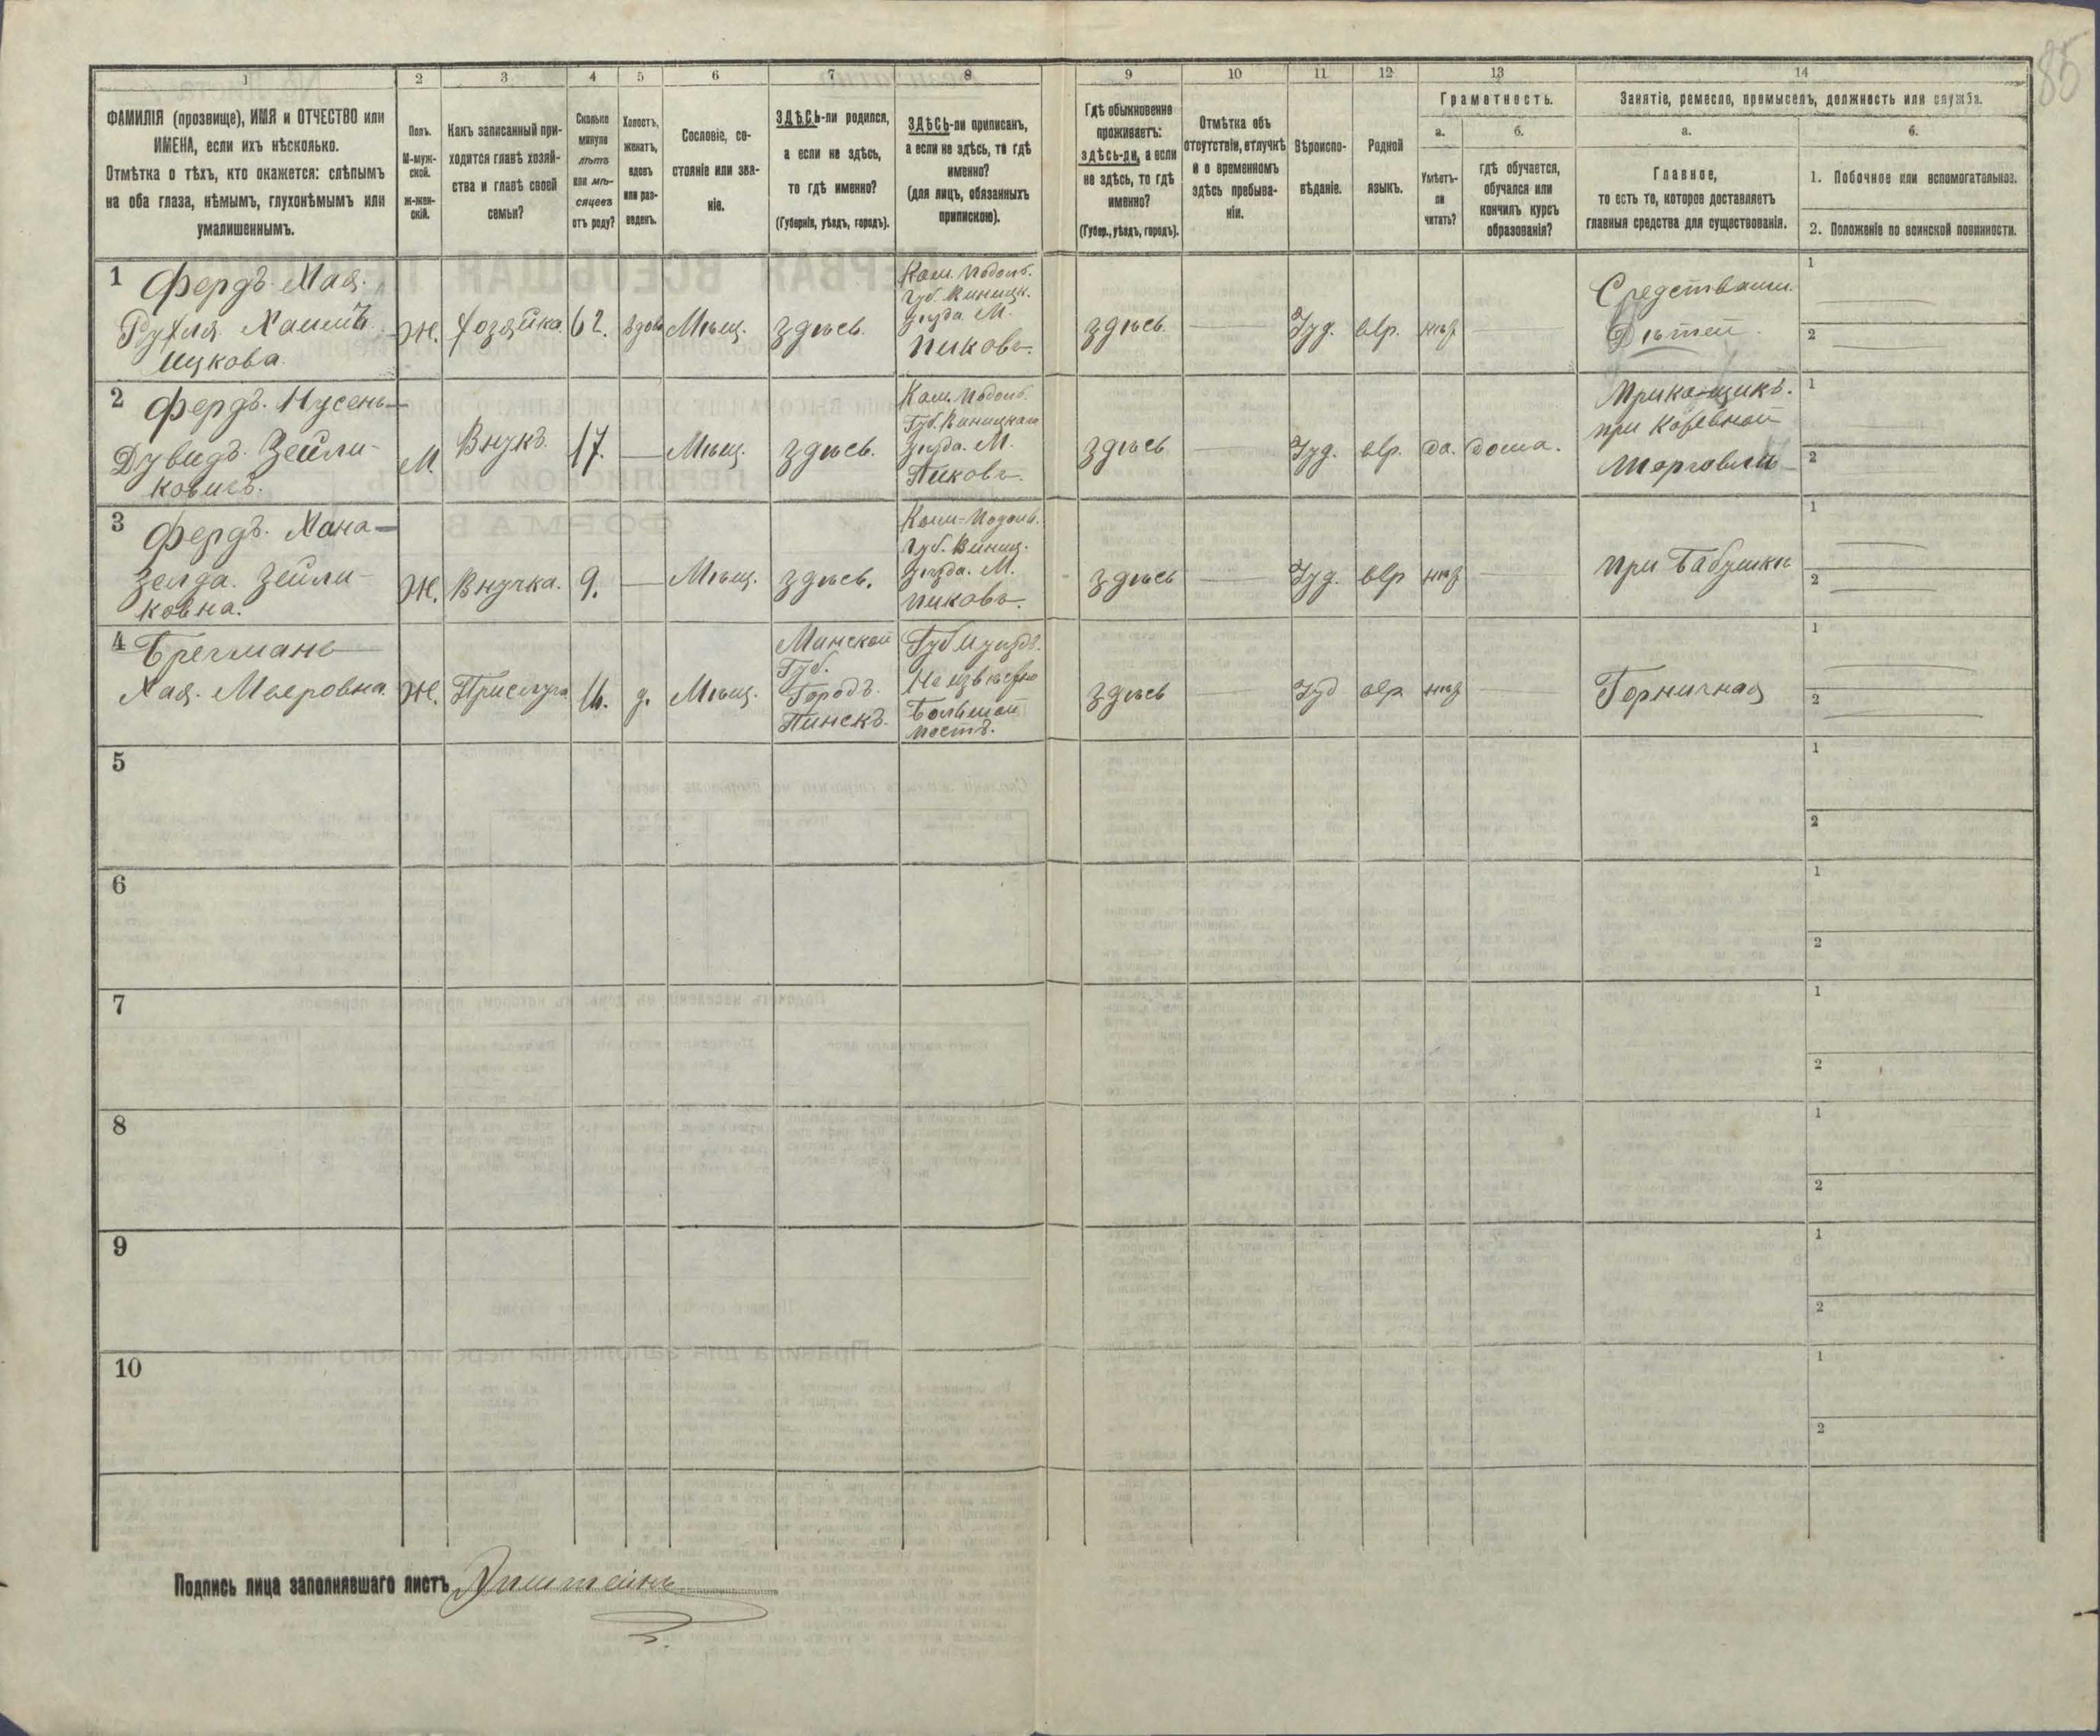 85
1 2 3 4 5 6 7 8 9 10 11 12 13 14
ФАМИЛІЯ (прозвище), ИМЯ и ОТЧЕСТВО или
ИМЕНА, если ихъ нѣсколько.
Отмѣтка о тѣхъ, кто окажется: слѣпымъ
на оба глаза, нѣмымъ, глухонѣмымъ или
умалишеннымъ.
Полъ.
М-муж-
ской.
Ж-жен-
скій.
Какъ записанный при-
ходится главѣ хозяй-
ства и главѣ своей
семьи?
Сколько
минуло
лѣтъ
или мѣ-
сяцевъ
отъ роду?
Холостъ,
женатъ,
вдовъ
или раз-
веденъ.
Сословіе, со-
стояніе или зва-
ніе.
ЗДѢСЬ-ли родился,
а если не здѣсь,
то гдѣ именно?
(Губернія, уѣздъ, городъ).
ЗДѢСЬ-ли приписанъ,
а если не здѣсь, то гдѣ
именно?
(для лицъ, обязанныхъ
припискою).
Гдѣ обыкновенно
проживаетъ:
здѣсь-ли, а если
не здѣсь, то гдѣ
именно?
(Губер., уѣздъ, городъ).
Отмѣтка объ
отсутствіи, отлучкѣ
и о временномъ
здѣсь пребыва-
ніи.
Вѣроиспо-
вѣданіе.
Родной
языкъ.
Грамотность.
а.
Умѣетъ-
ли
читать?
б.
гдѣ обучается,
обучался или
кончилъ курсъ
образованія?
Занятіе, ремесло, промыселъ, должность или служба.
а.
Главное,
то есть то, которое доставляетъ
главныя средства для существованія.
б.
1. Побочное или вспомогательное.
2. Положеніе по воинской повинности.
1 Фердъ. Мая.
Рухля. Хаимъ
Ицкова.
Ж.
Хозяйка
62.
вдова
Мѣщ.
здѣсь.
Кам. Подол.
Губ. Виницк.
уѣзда. М.
Пиковъ.
здѣсь.
Іуд.
евр.
нѣт
Средствами
Дѣтей.
1
2
2 Фердъ. Нусень
Дувидъ. Зейли-
ковичъ.
М
Внукъ.
17.
Мѣщ.
здѣсь.
Кам. Подол.
Губ. Виницкаго
уѣзда. М.
Пиковъ.
здѣсь
Іуд.
евр.
да.
дома.
Прикащикъ.
при
Торговли
1
2
3 Фердъ. Хана
Зелда. Зейли-
ковна.
Ж.
Внучка.
9.
Мѣщ.
здѣсь.
Кам-Подол.
Губ. Виниц.
уѣзда. М.
Пиковъ.
здѣсь
Іуд.
евр
нѣт
при Бабушки
1
2
4 Брегманъ
Хая. Мееровна.
Ж.
Прислуга
16.
д.
Мѣщ.
Минской
Губ.
Городъ.
Пинскъ.
Губ и уѣздъ.
Неизвѣстно
здѣсь
Іуд
евр
нѣт
Горничная
1
2
5
1
2
6
1
2
7
1
2
8
1
2
9
1
2
10
1
2
Подпись лица заполнявшаго листъ